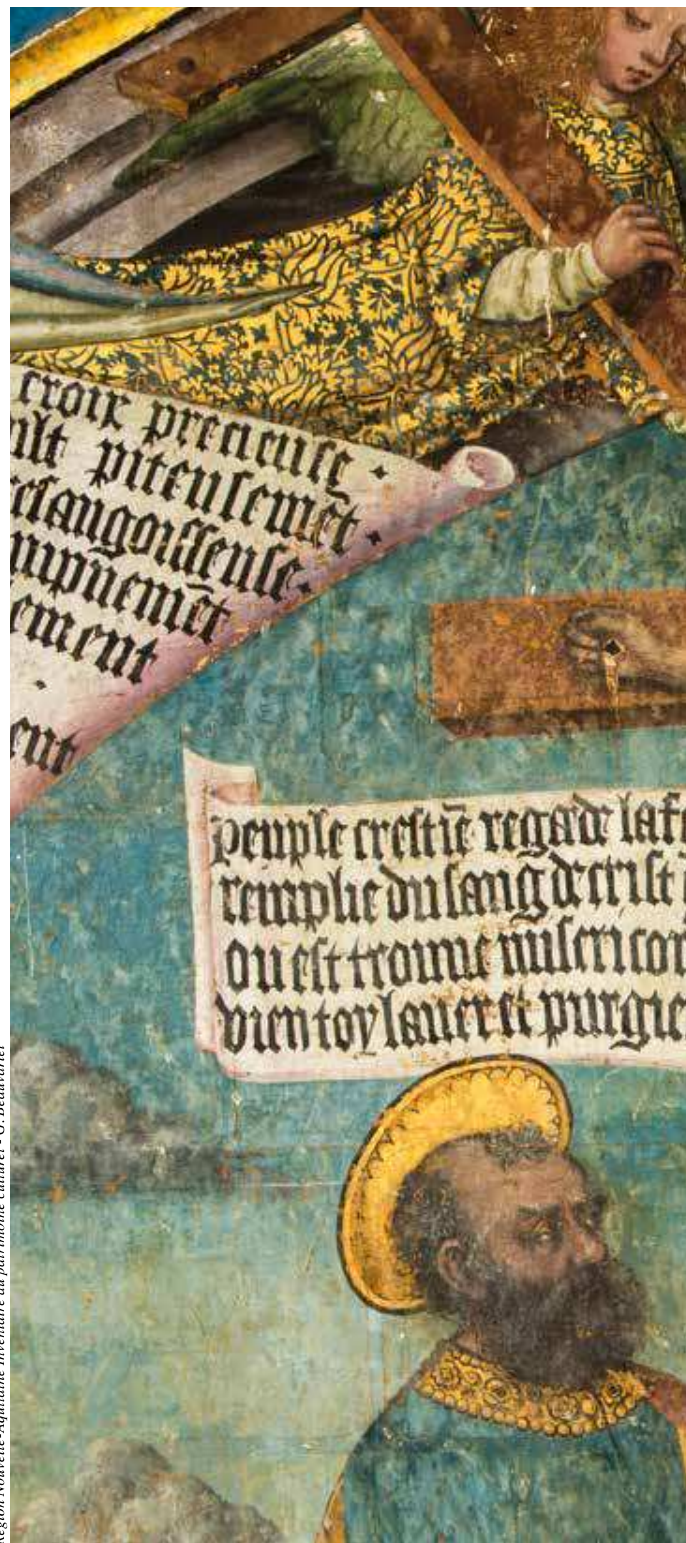 croix precieuse ·
ult piteusemēt ·
elangoisseuse ·
ement
ent
peuple crestiē regarde la fo
remplie du sang de crist
ou est trouue misericor
vien toy lauer et purgie
Région Nouvelle-Aquitaine Inventaire du patrimoine culturel - G. Beauvarlet